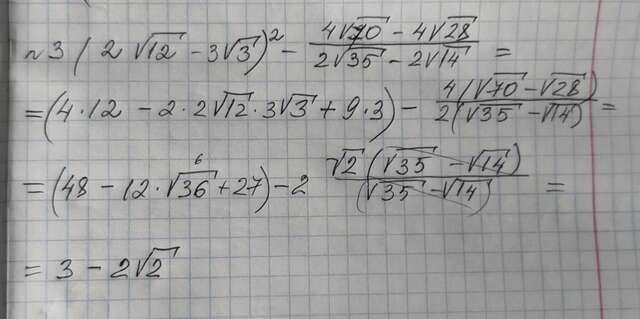 №3 (2√12 - 3√3)² - (4√70 - 4√28)/(2√35 - 2√14) =
= (4·12 - 2·2√12·3√3 + 9·3) - 4(√70 - √28)/2(√35 - √14) =
= (48 - 12·√36 + 27) - 2 √2(√35 - √14)/(√35 - √14) =
6
= 3 - 2√2